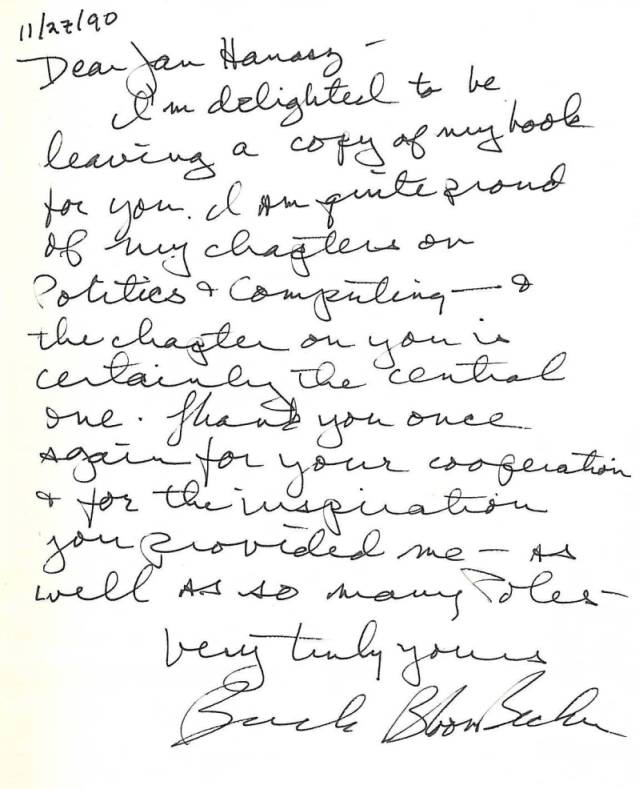 11/27/90
Dear Jan Hanasz -
I'm delighted to be
leaving a copy of my book
for you. I am quite proud
of my chapters on
Politics & Computing — &
the chapter on you is
certainly the central
one. Thank you once
again for your cooperation
& for the inspiration
you provided me - as
well as so many Poles -
very truly yours
Buck BloomBecker